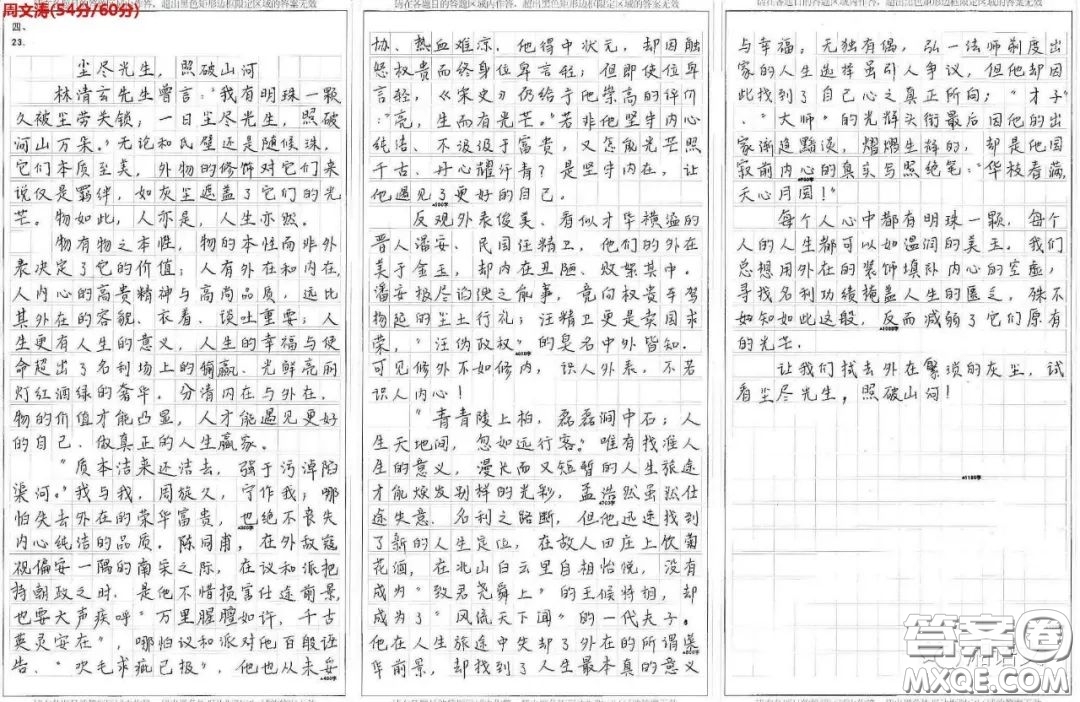 周文涛(54分/60分)
请在各题目的答题区域内作答，超出黑色矩形边框限定区域的答案无效
四、
23.
尘尽光生，照破山河
林清玄先生曾言："我有明珠一颗
久被尘劳关锁；一日尘尽光生，照破
河山万朵。"无论和氏璧还是随候珠，
它们本质至美，外物的修饰对它们来
说仅是羁绊，如灰尘遮盖了它们的光
芒。物如此，人亦是，人生亦然。
物有物之本性，物的本性而非外
表决定了它的价值；人有外在和内在，
人内心的高贵精神与高尚品质，远比
其外在的容貌、衣着、谈吐重要；人
生更有人生的意义，人生的幸福与使
命超出了名利场上的输赢、光鲜亮丽
灯红酒绿的奢华。分清内在与外在，
物的价值才能凸显，人才能遇见更好
的自己、做真正的人生赢家。
"质本洁来还洁去，强于污淖陷
渠沟。"我与我，周旋久，宁作我；哪
怕失去外在的荣华富贵，也绝不丧失
内心纯洁的品质。陈同甫，在外敌寇
视偏安一隅的南宋之际，在议和派把
持朝政之时，是他不惜损害仕途前景，
也要大声疾呼"万里腥膻如许，千古
英灵安在"，哪怕议和派对他百般诬
告、"吹毛求疵已极"，他也从未妥
协、热血难凉，他得中状元，却因触
怒权贵而终身位卑言轻；但即使位卑
言轻，《宋史》仍给予他崇高的评价
："亮，生而有光芒。"若非他坚守内心
纯洁、不汲汲于富贵，又怎能光芒照
千古、丹心耀汗青？是坚守内在，让
他遇见了更好的自己。
反观外表俊美、看似才华横溢的
晋人潘安、民国汪精卫，他们的外在
美于金玉，却内在丑陋、败絮其中。
潘安极尽谄谀之能事，竟向权贵车驾
扬起的尘土行礼；汪精卫更是卖国求
荣，"汪伪政权"的臭名中外皆知。
可见修外不如修内，识人外表，不若
识人内心！
"青青陵上柏，磊磊涧中石；人
生天地间，忽如远行客。"唯有找准人
生的意义，漫长而又短暂的人生旅途
才能焕发别样的光彩，孟浩然虽然仕
途失意、名利之路断，但他迅速找到
了新的人生定位，在故人田庄上饮菊
花酒，在北山白云里自相怡悦，没有
成为"致君尧舜上"的王候将相，却
成为了"风流天下闻"的一代夫子。
他在人生旅途中失却了外在的所谓荣
华前景，却找到了人生最本真的意义
与幸福；无独有偶，弘一法师剃度出
家的人生选择虽引人争议，但他却因
此找到了自己心之真正所向；"才子"
、"大师"的光辉头衔最后因他的出
家渐趋黯淡，熠熠生辉的，却是他圆
寂前内心的真实与照绝笔："华枝春满，
天心月圆！"
每个人心中都有明珠一颗，每个
人的人生都可以如温润的美玉。我们
总想用外在的装饰填补内心的空虚，
寻找名利功绩掩盖人生的匮乏，殊不
知如此这般，反而减弱了它们原有
的光芒。
让我们拭去外在繁琐的灰尘，试
看尘尽光生，照破山河！
答案圈
MXQE.COM